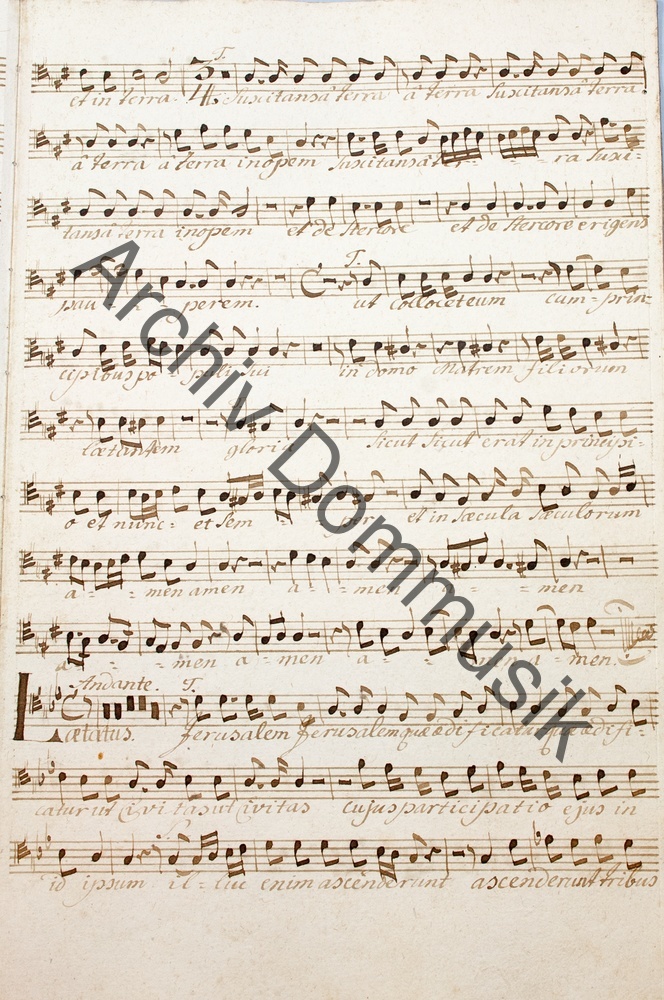 T.
et in terra. Suscitans à terra à terra Suscitans à terra.
à terra à terra inopem Suscitans à ter - - - ra Susci-
tans à terra inopem et de stercore et de stercore erigens
T.
pau - - perem. ut collocet eum cum - prin-
cipibus po - puli sui in domo Matrem filiorum
lætantem gloria Sicut Sicut erat in principi-
o et nunc - et sem - - per et in sæcula sæculorum
a - - men amen a - - men a - - men
a - - - men a - men a - - men a - men.
Andante. T.
Lætatus. Jerusalem Jerusalem quæ ædificatur quæ ædifi-
catur ut Civitas ut Civitas cujus participatio ejus in
id ipsum il - luc enim ascenderunt ascenderunt tribus
Archiv Dommusik